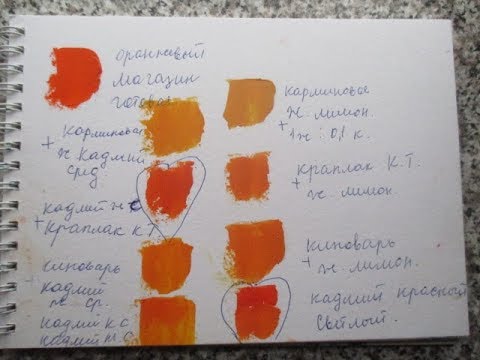 оранжевый
магазин
готов
карминовая
+
ж кадмий
сред
кадмий ж с
+ краплак к.т
киноварь
кадмий
ж. ср.
кадмий к с
кадмий ж с.
карминовые
ж. лимон.
+
1ж : 0,1 к.
краплак К.Т.
+
ж. лимон.
киноварь
+
ж. лимон.
кадмий красной
светлый.